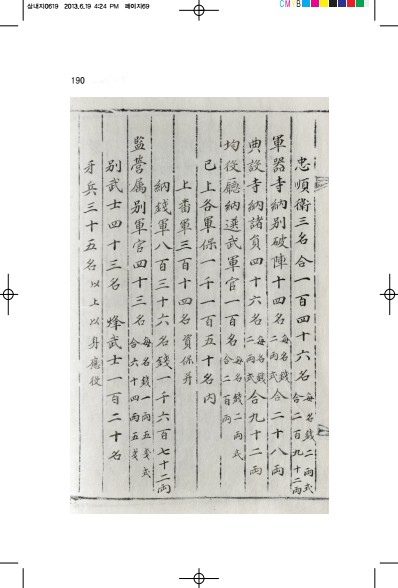 삼내지0619 2013.6.19 4:24 PM 페이지69
CM B
190
忠順衛三名合一百四十六名 每名錢二兩式 合二百九十二兩
軍器寺納別破陣十四名 每名錢二兩式 合二十八兩
典設寺納諸員四十六名 每名錢二兩式 合九十二兩
均役廳納選武軍官一百名 每名錢二兩式 合二百兩
已上各軍保一千一百五十名內
上番軍三百十四名 資保幷
納錢軍八百三十六名錢一千六百七十二兩
監營属別軍官四十三名 每名錢一兩五戔式 合六十四兩五戔
別武士四十三名 烽武士一百二十名
牙兵三十五名 以上以身應役